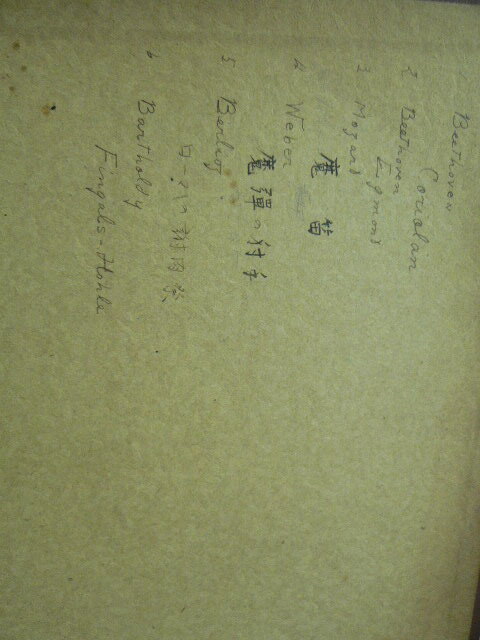 Beethoven
Coriolan
2 Beethoven
Egmont
3 Mozart
魔笛
4 Weber
魔彈の射手
5 Berlioz
ローマの謝肉祭
6 Bartholdy
Fingals-Höhle